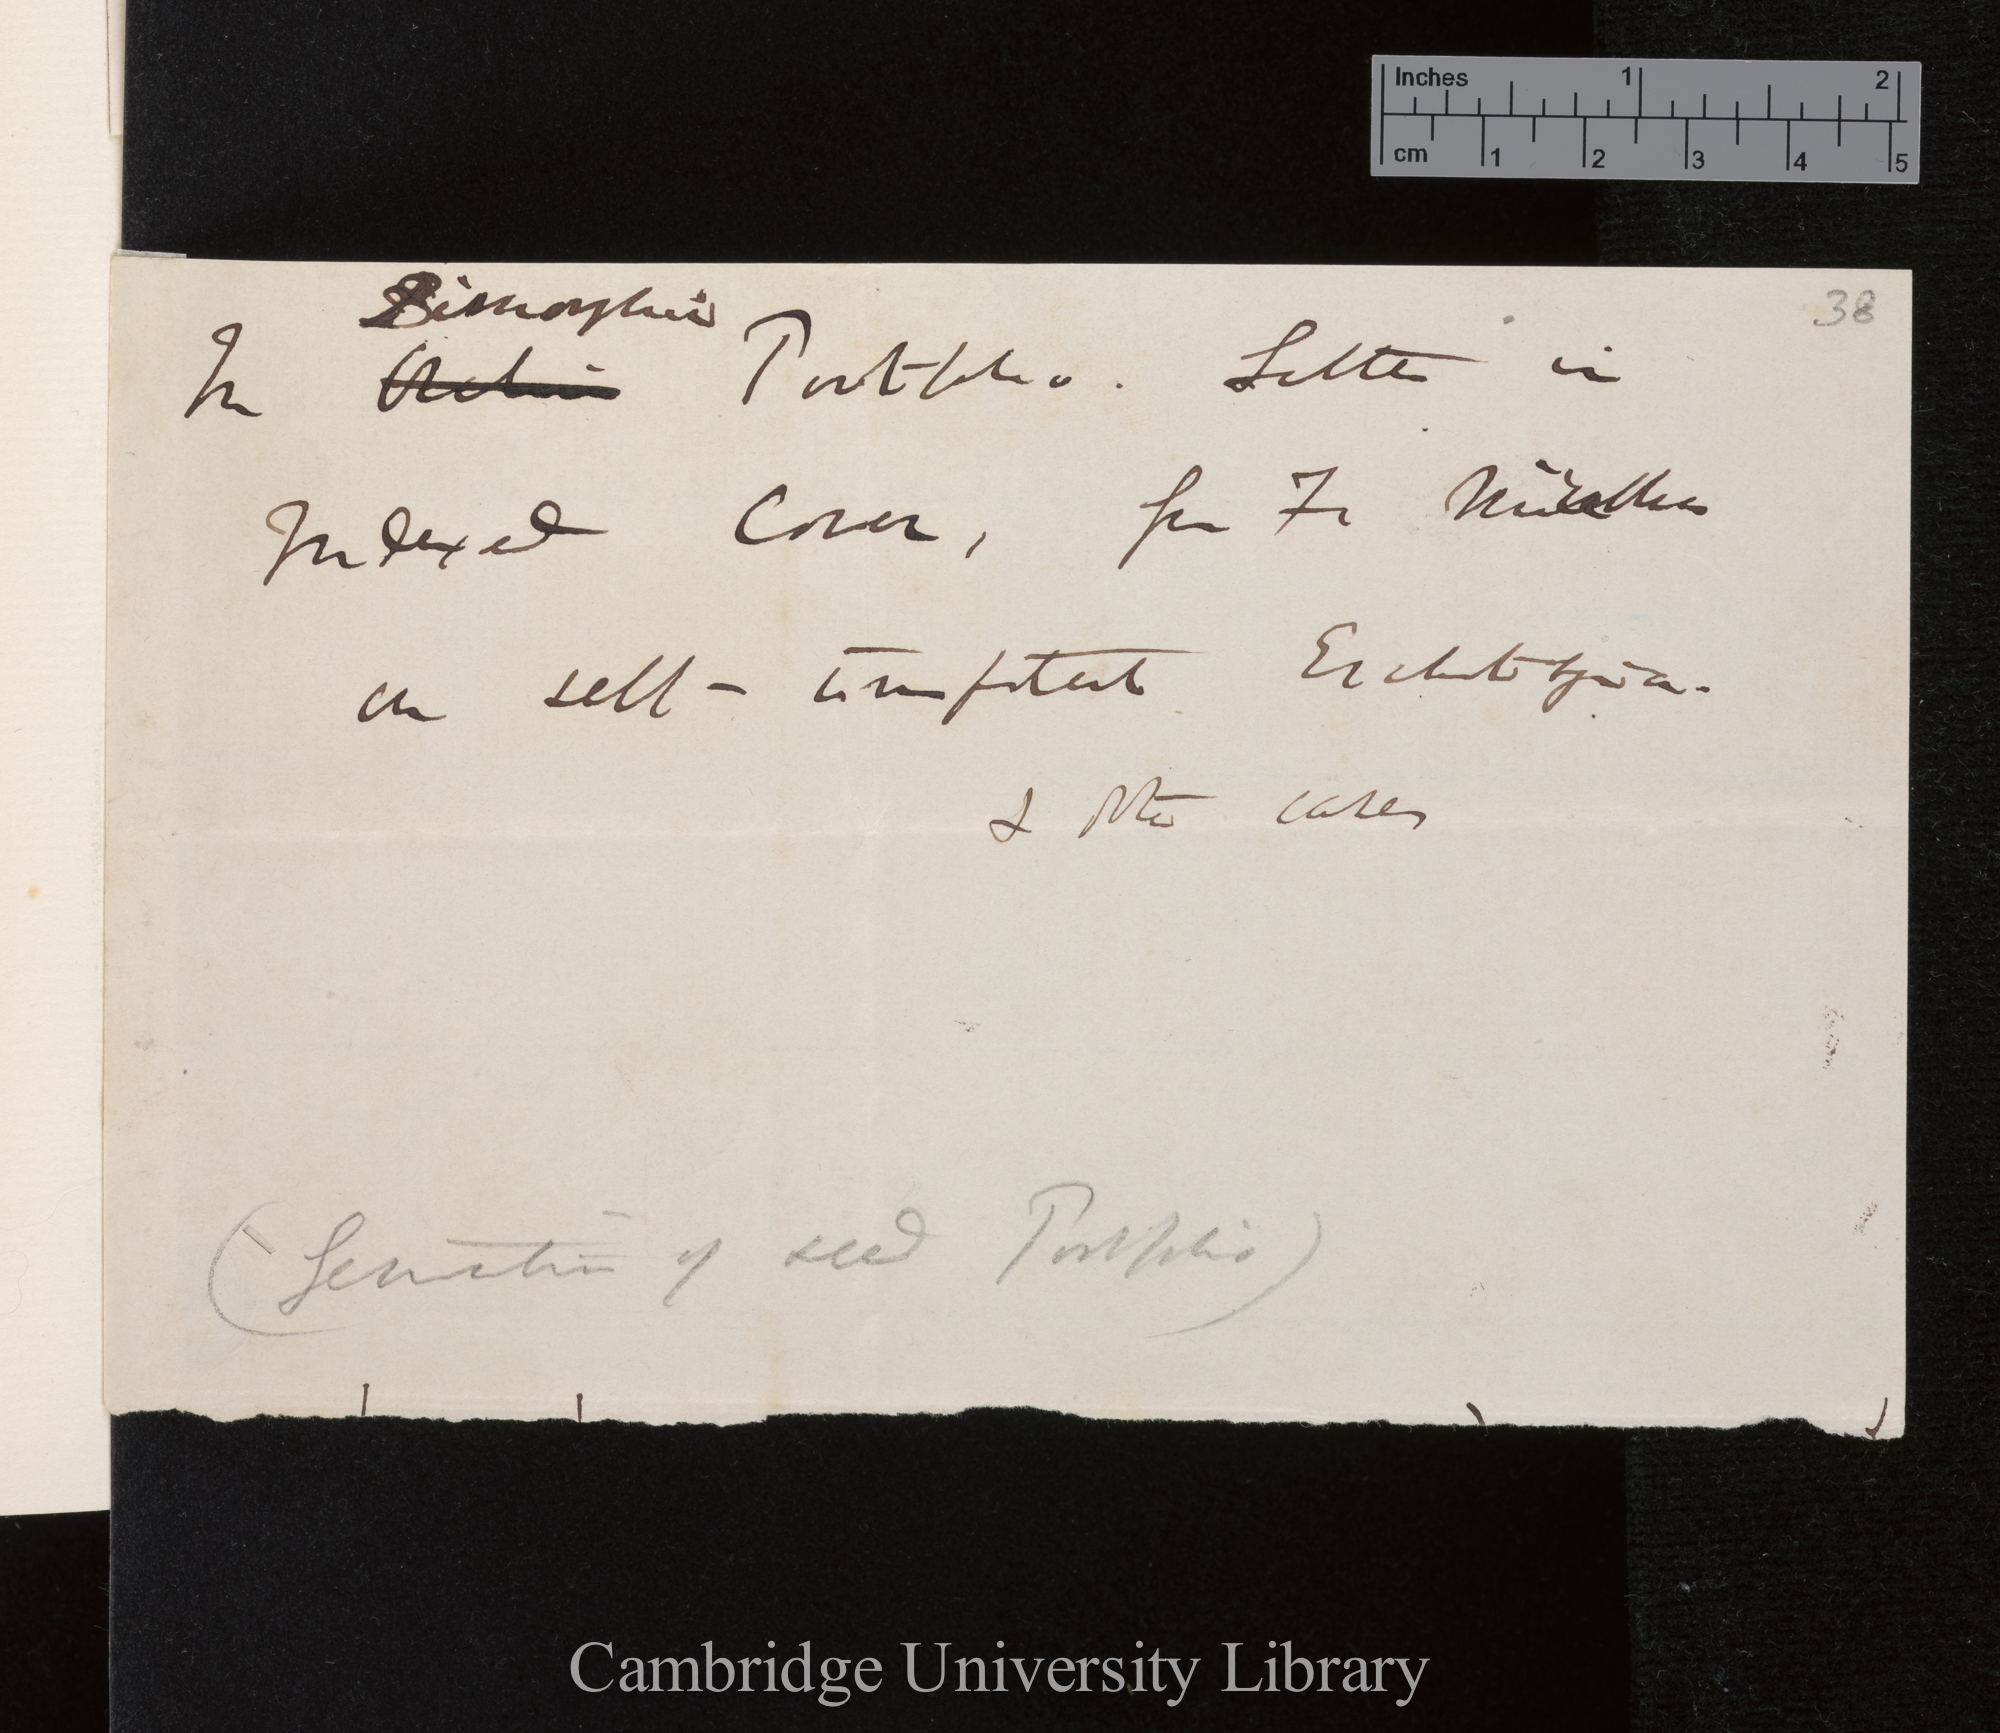 Inches 1 2
cm 1 2 3 4 5
38
Dimorphic
In Orchis Portfolio. Letter in
Indexed Cover, from Fr Müller
on self-impotent Eschscholtzia.
& other cases
(Generation of seed Portfolio)
Cambridge University Library